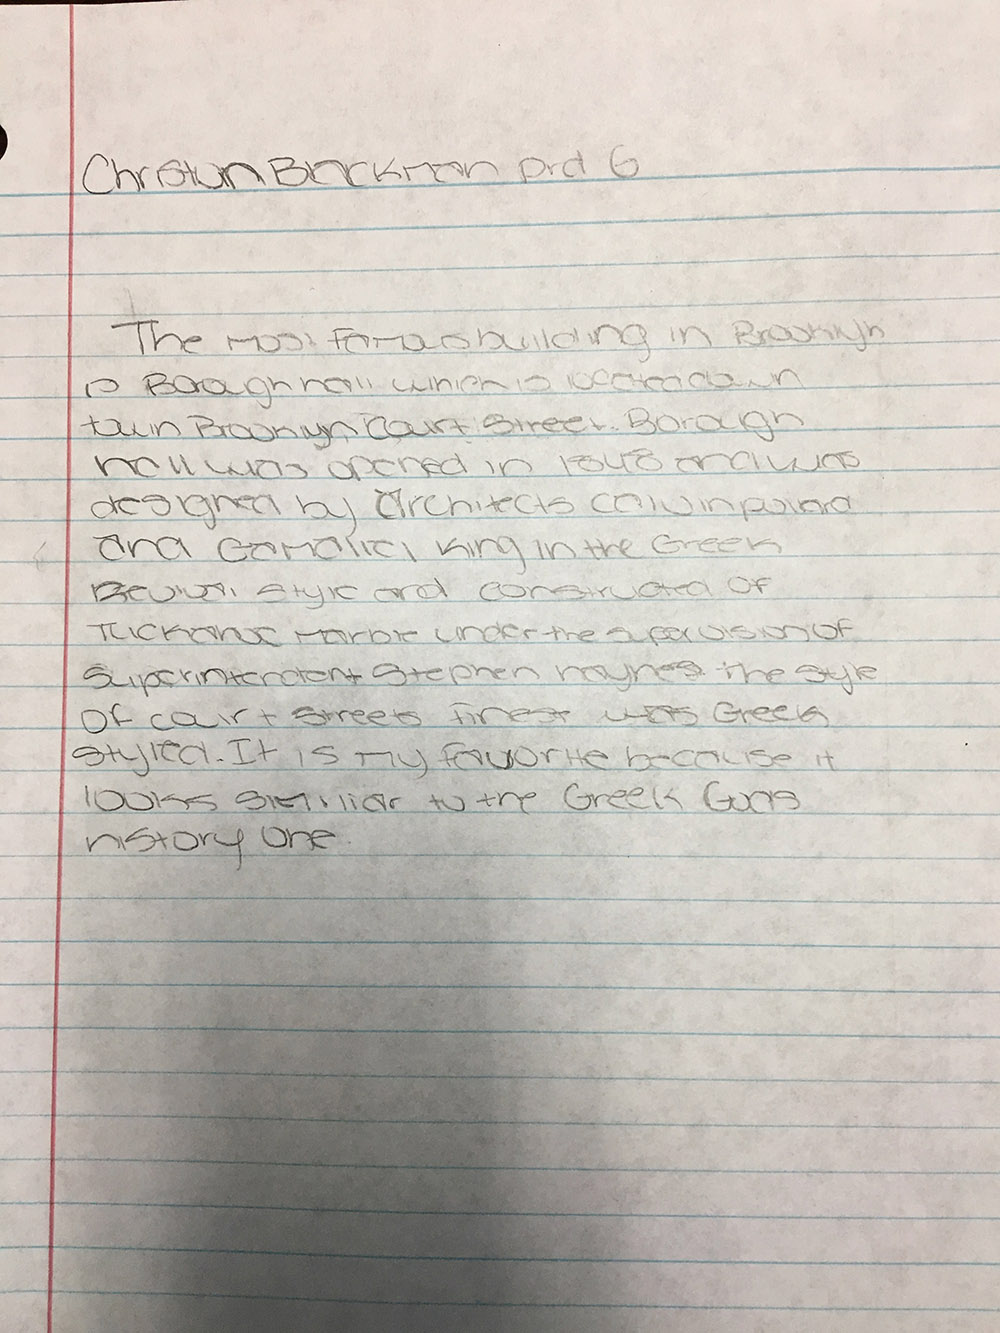 Christian Blackman prd 6
The most famous building in Brooklyn
is Borough hall which is located down
town Brooklyn Court Street. Borough
hall was opened in 1848 and was
designed by Architects calvin pollard
and Gamaliel King in the Greek
Revival style and constructed of
Tuckahoe marble under the supervision of
Superintendent Stephen haynes. The style
Of court streets finest was Greek
styled. It is my favorite because it
looks similiar to the Greek Gods
history one.